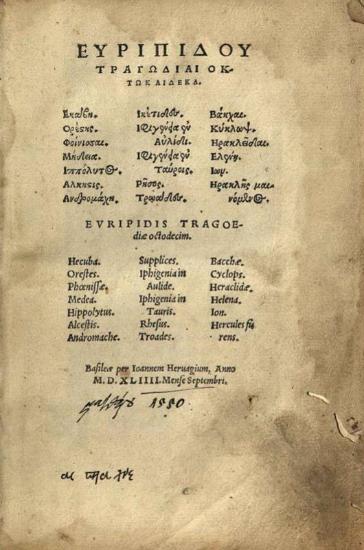 ΕΥΡΙΠΙΔΟΥ
ΤΡΑΓΩΔΙΑΙ ΟΚ-
ΤΩΚΑΙΔΕΚΑ.
Εκάβη. Ικέτιδες. Βάκχαι.
Ορέστης. Ιφιγένεια ἡ ἐν Κύκλωψ.
Φοίνισσαι. Αὐλίδι. Ηρακλεῖδαι.
Μήδεια. Ιφιγένεια ἡ ἐν Ελένη.
Ιππόλυτος. Ταύροις. Ιων.
Αλκηςις. Ρῆσος. Ηρακλῆς μαι-
Ανδρομάχη. Τρωάδες. νόμενος.
EVRIPIDIS TRAGOE-
diæ octodecim.
Hecuba. Supplices. Bacchæ.
Orestes. Iphigenia in Cyclops.
Phœnissæ. Aulide. Heraclidæ.
Medea. Iphigenia in Helena.
Hippolytus. Tauris. Ion.
Alcestis. Rhesus. Hercules fu
Andromache. Troades. rens.
Basileæ per Ioannem Heruagium, Anno
M. D. XLIIII. Mense Septembri.
1550